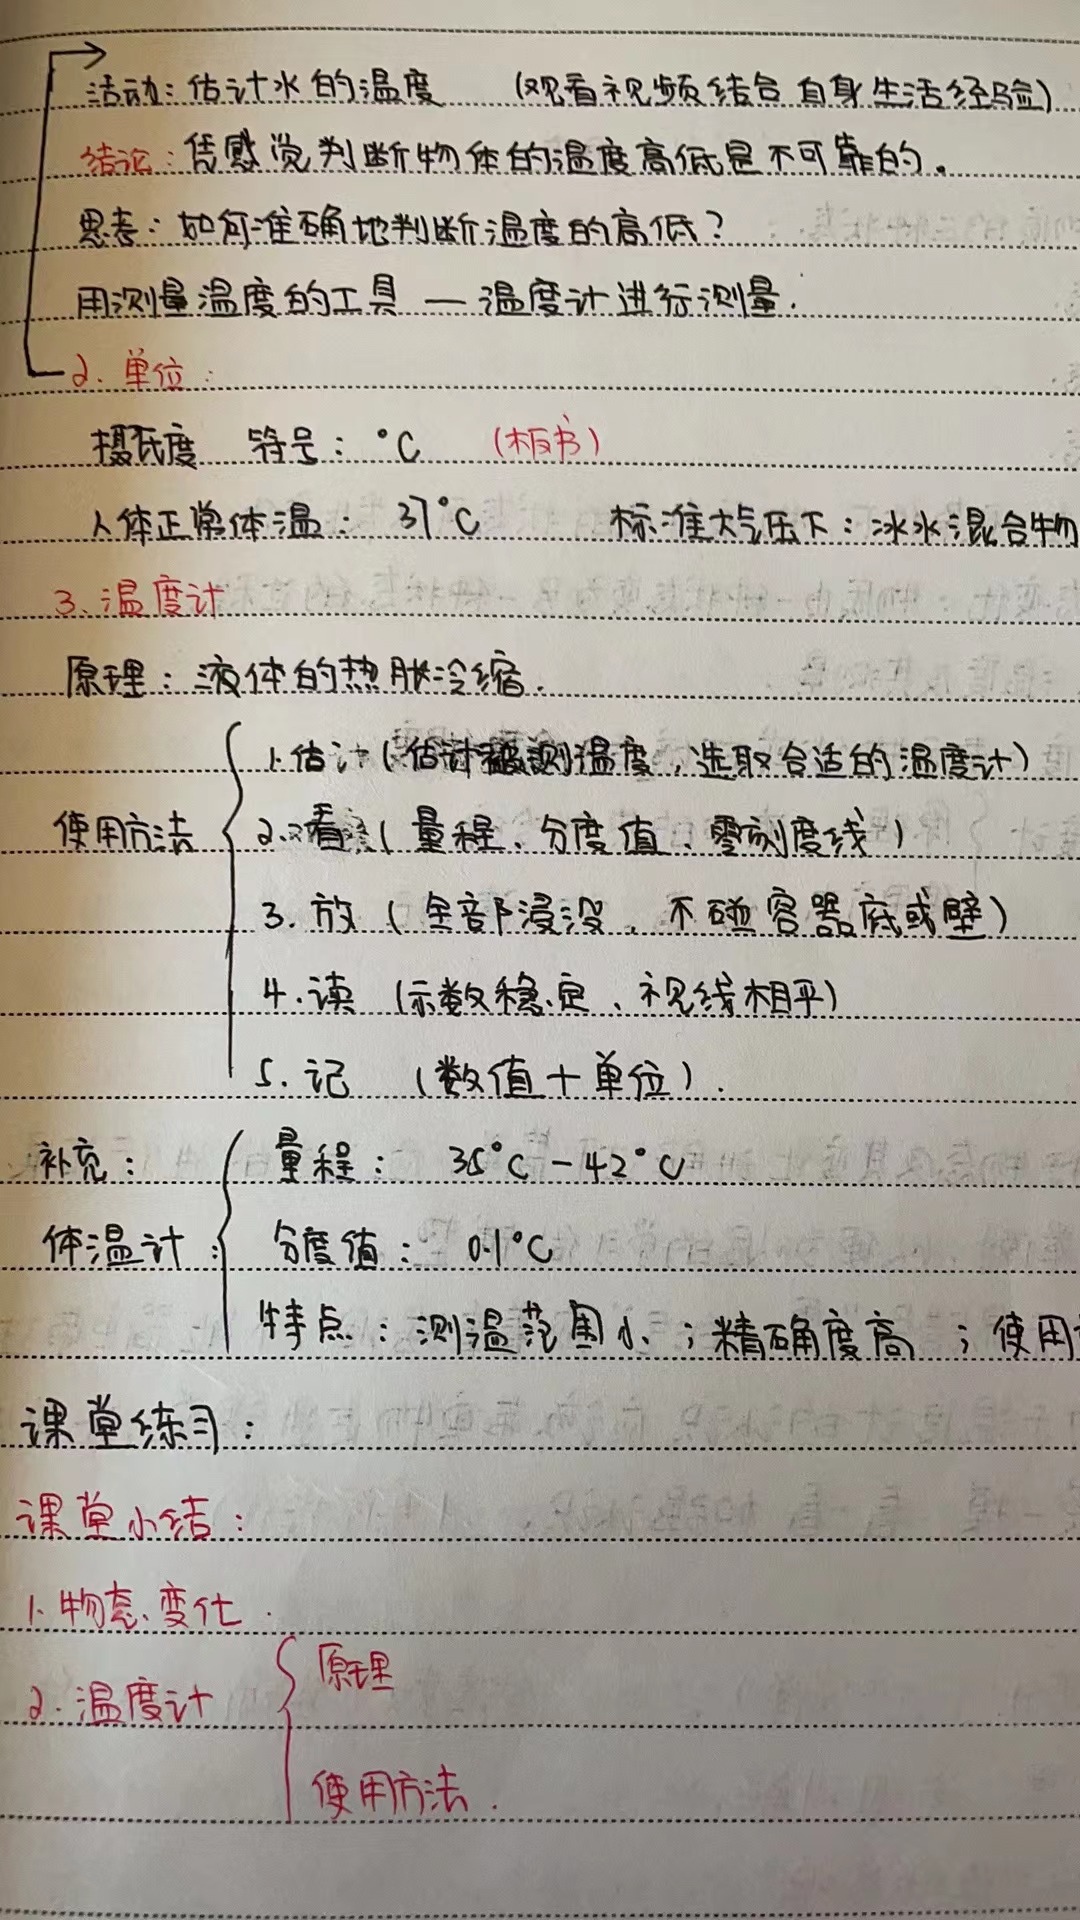 活动：估计水的温度 （观看视频结合自身生活经验）
结论：凭感觉判断物体的温度高低是不可靠的。
思考：如何准确地判断温度的高低？
用测量温度的工具 — 温度计进行测量.
2. 单位：
摄氏度 符号：℃ （板书）
人体正常体温：37℃ 标准大气压下：冰水混合物
3. 温度计
原理：液体的热胀冷缩.
1.估计（估计被测温度，选取合适的温度计）
使用方法 2.看（量程、分度值、零刻度线）
3. 放（全部浸没、不碰容器底或壁）
4. 读（示数稳定、视线相平）
5. 记 （数值+单位）.
补充： 量程： 35℃-42℃
体温计： 分度值： 0.1℃
特点：测温范围小；精确度高；使用
课堂练习：
课堂小结：
1. 物态变化.
原理
2. 温度计
使用方法.